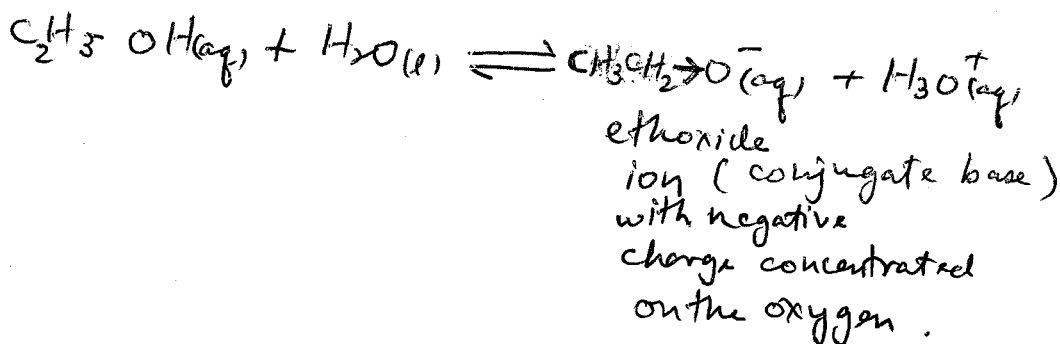 C₂H₅ OH(aq) + H₂O(l) ⇌ CH₃CH₂→O⁻(aq) + H₃O⁺(aq)
ethoxide
ion (conjugate base)
with negative
charge concentrated
on the oxygen.